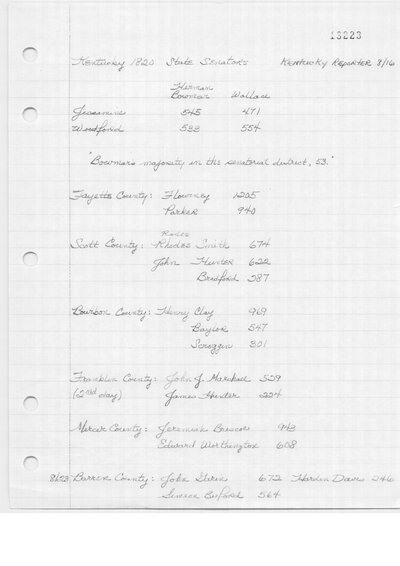 13223
Kentucky 1820 State Senators Kentucky Reporter 8/16
Herman
Bowmar Wallace
Jessamine 545 471
Woodford 533 554
"Bowmar's majority in the senatorial district, 53."
Fayette County: Flournoy 1205
Parker 940
Rodes
Scott County: Rhodes Smith 674
John Hunter 622
Bradford 387
Bourbon County: Henry Clay 969
Baylor 547
Scroggin 301
Franklin County: John J. Marshall 539
(2nd day) James Hunter 224
Mercer County: Jeremiah Briscoe 943
Edward Worthington 608
8/23 Barren County: John 672 Hardin Davis 246
Buford 564